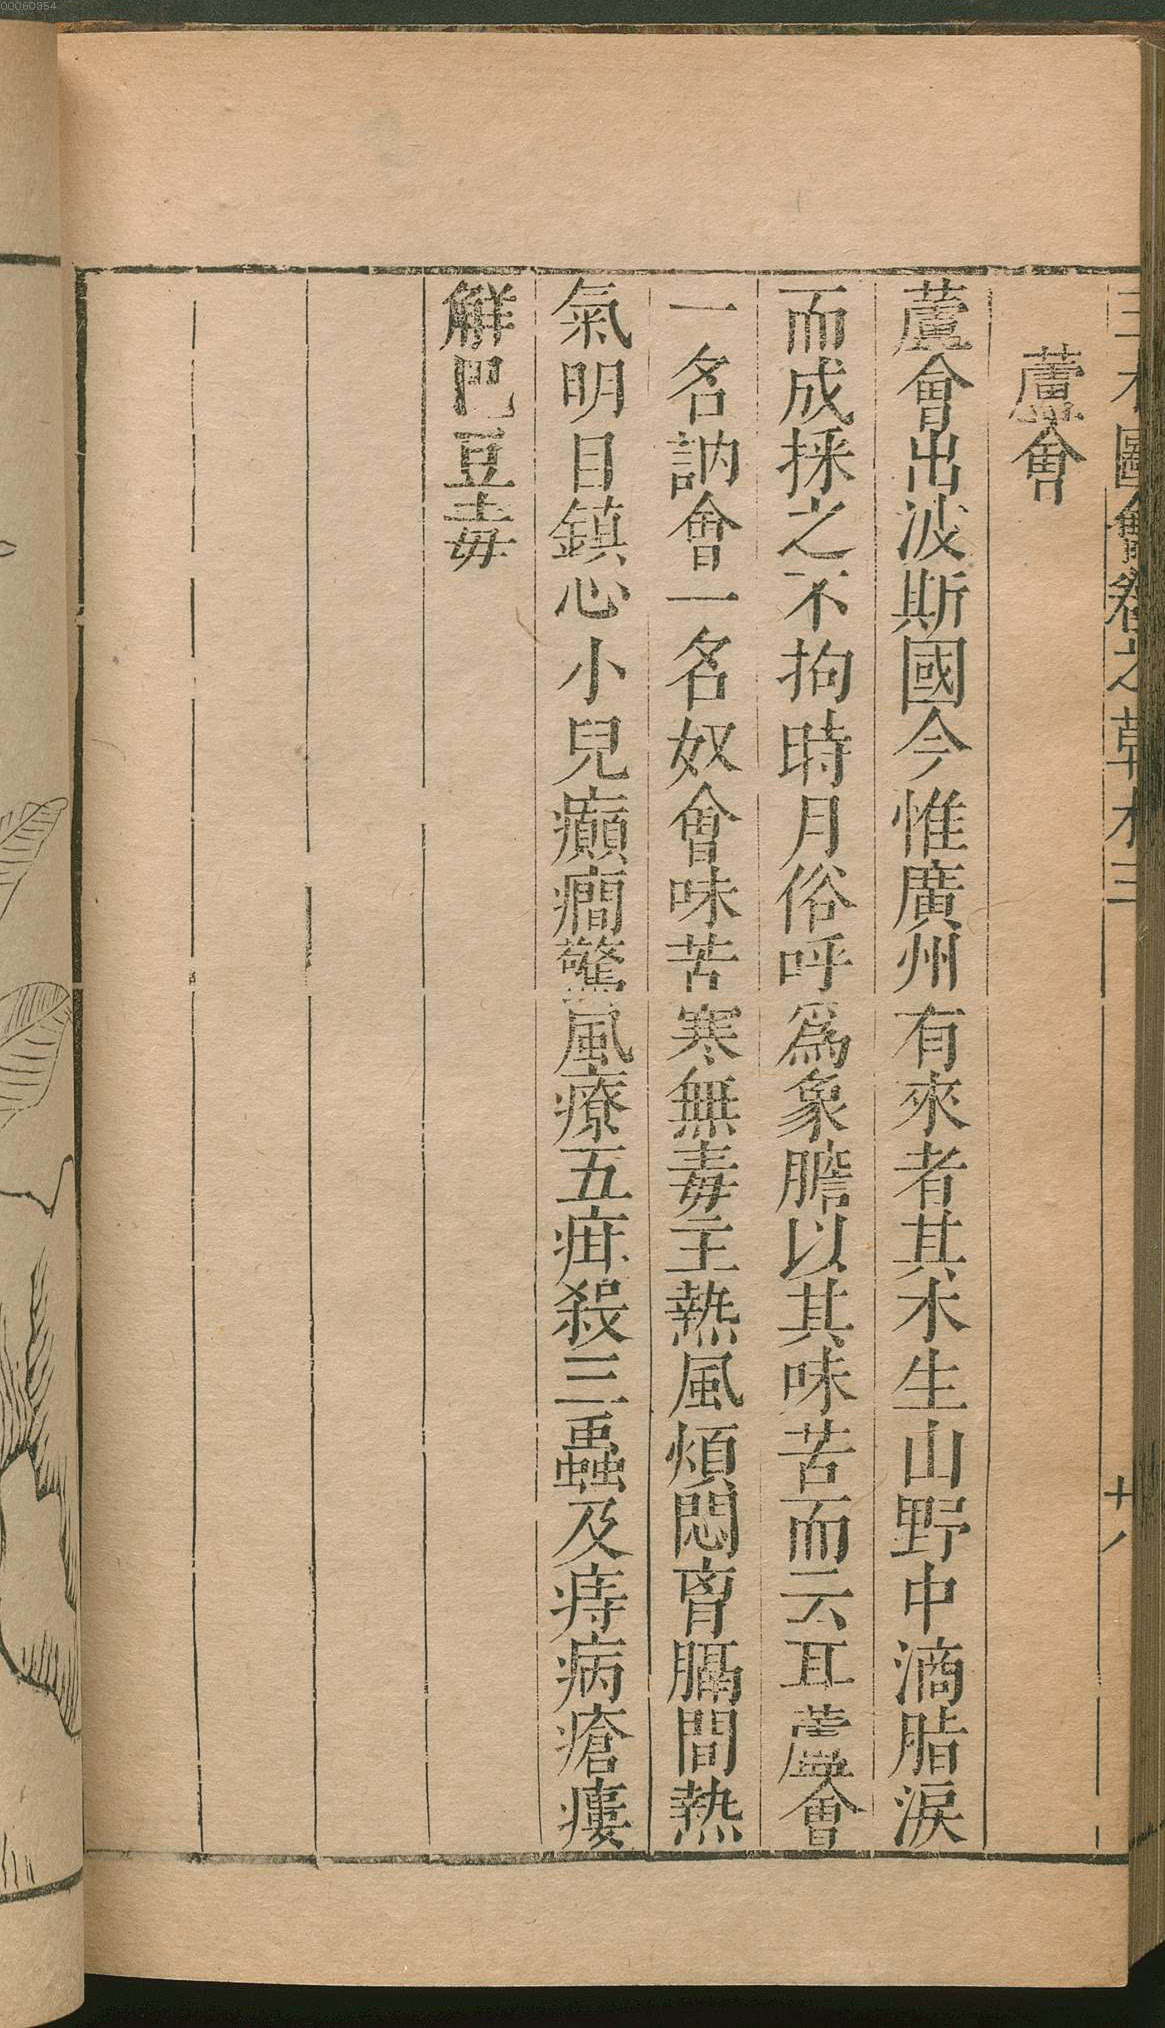 00060354
蘆會
蘆會出波斯國今惟廣州有來者其木生山野中滴脂淚
而成採之不拘時月俗呼爲象膽以其味苦而云耳蘆會
一名訥會一名奴會味苦寒無毒主熱風煩悶胷膈間熱
氣明目鎮心小兒癲癇驚風療五疳殺三蟲及痔病瘡瘻
觧巴豆毒